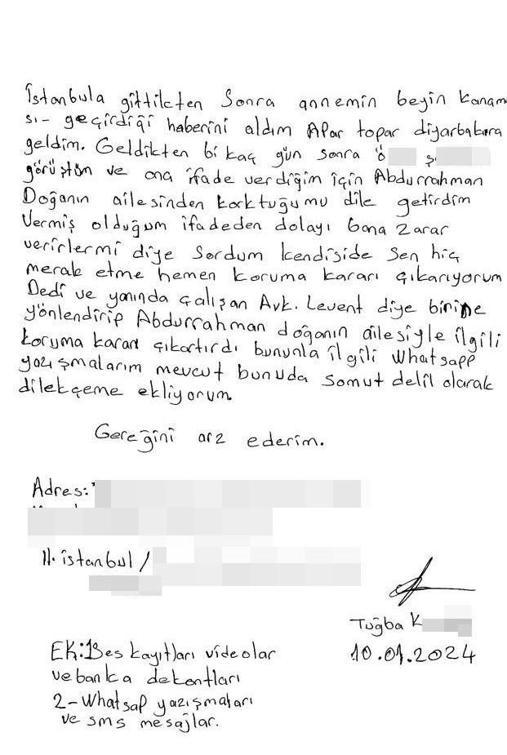 İstanbula gittikten Sonra annemin beyin kanam
sı- geçirdiği haberini aldım APar topar diyarbakıra
geldim. Geldikten bi kaç gün sonra Ö Ş
görüştüm ve ona ifade verdiğim için Abdurrahman
Doğanın ailesinden korktuğumu dile getirdim
Vermiş olduğum ifadeden dolayı bana Zarar
verirlermi diye Sordum kendiside Sen hiç
merak etme hemen koruma kararı çıkarıyorum
Dedi ve yanında çalışan Avk. Levent diye birine
yönlendirip Abdurrahman doğanın ailesiyle ilgili
koruma kararı çıkartırdı bununla ilgili Whatsapp
yazışmalarım mevcut bunuda Somut delil olarak
dilekçeme ekliyorum.
Gereğini arz ederim.
Adres:
İstanbul /
Tuğba K
10.01.2024
EK:1 Ses kayıtları videolar
ve banka dekontları
2-Whatsap yazışmaları
ve sms mesajlar.